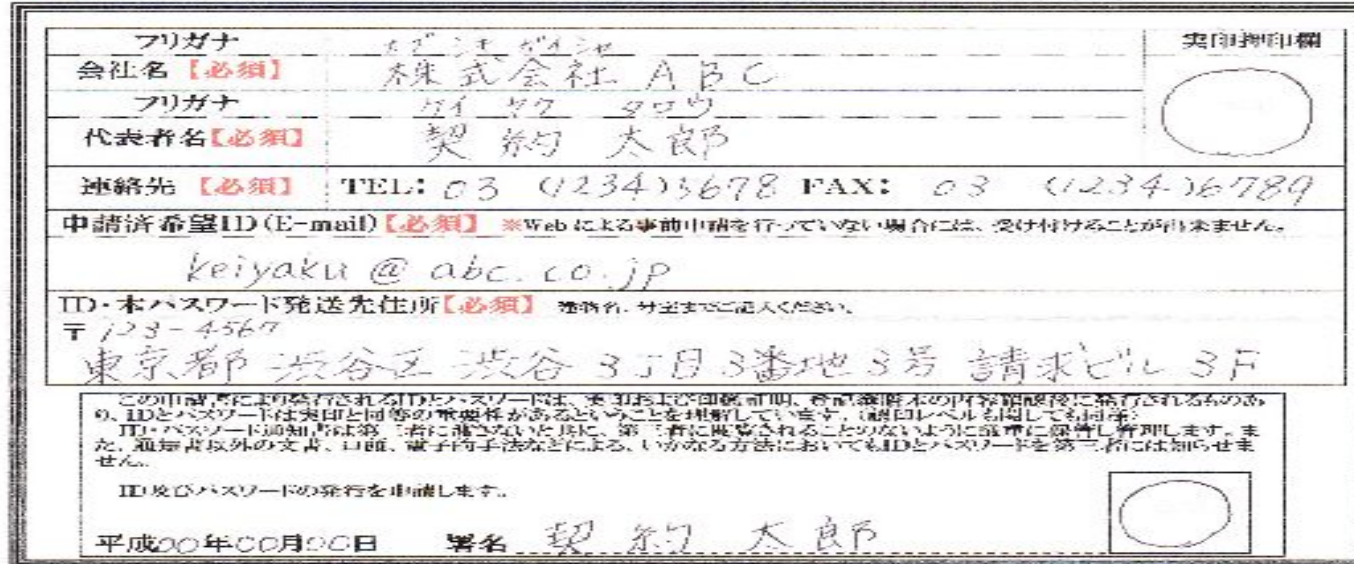 フリガナ カブシキガイシャ 実印押印欄
会社名【必須】 株式会社 ABC
フリガナ ケイヤク タロウ
代表者名【必須】 契約 太郎
連絡先【必須】 TEL: 03 (1234)5678 FAX: 03 (1234)6789
申請済希望ID(E-mail)【必須】 ※Webによる事前申請を行っていない場合には、受け付けることが出来ません。
keiyaku@abc.co.jp
ID・本パスワード発送先住所【必須】 建物名、号室までご記入ください。
〒123-4567
東京都渋谷区渋谷3丁目3番地3号 請求ビル 3F
この申請書により発行されるIDとパスワードは、実印および印鑑証明、登記簿謄本の内容確認後に発行されるものあ
り、IDとパスワードは実印と同等の重要性があるということを理解しています。(認印レベルも関しても同様)
ID・パスワード通知書は第三者に渡さないと共に、第三者に閲覧されることのないように厳重に保管し管理します。ま
た、通知書以外の文書、口頭、電子的手法などによる、いかなる方法においてもIDとパスワードを第三者には知らせま
せん。
ID及びパスワードの発行を申請します。
平成○○年○○月○○日 署名 契約 太郎